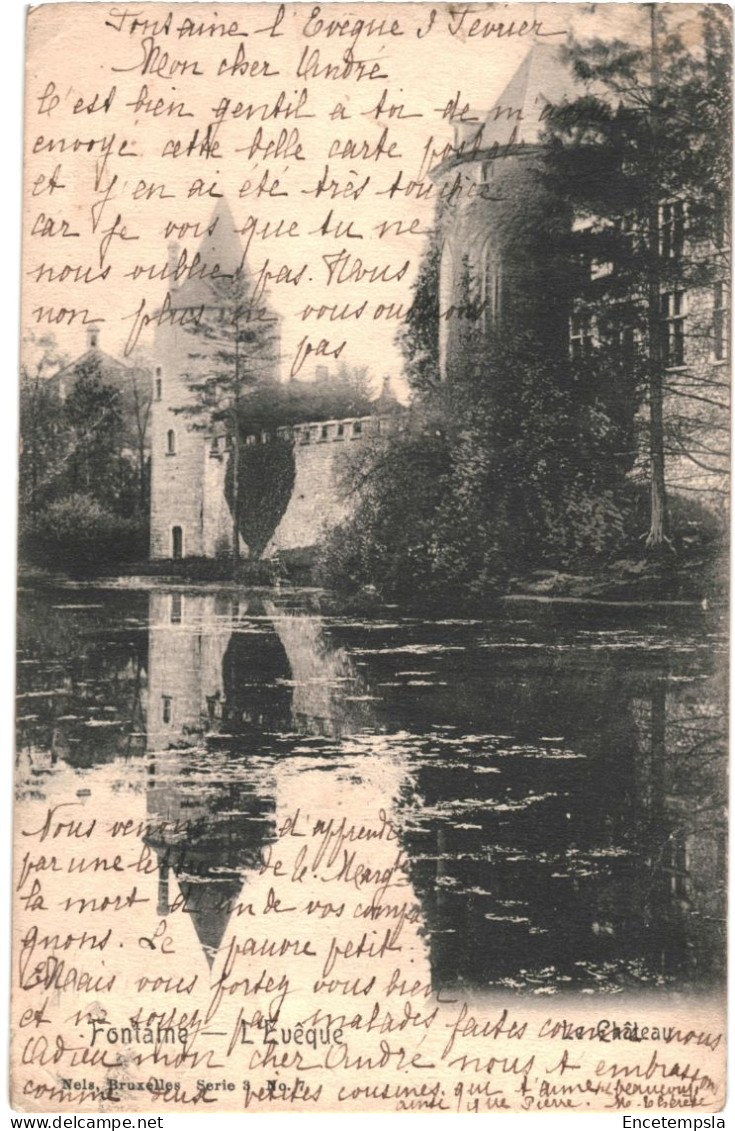 Fontaine l'Evêque 3 Fevrier
Mon cher André
C'est bien gentil a toi de m'avoir
envoyé cette belle carte postale
et j'en ai été très touchée
car je vois que tu ne
nous oublie pas. Nous
non plus vous ou
pas
Nous venons d'apprendre
par une lettre de le. Marg
la mort d'un de vos compa
gnons. Le pauvre petit.
Mais vous fortez vous bien
et ne soyez pas malades faites comme nous
Adieu mon cher André nous t'embrassons
comme deux petites cousines qui t'aime beaucoup
ainsi que Pierre. M. Thérèse
Fontaine — L'Evêque Le Château
Nels, Bruxelles, Serie 3 No. 7
© Encetempsla